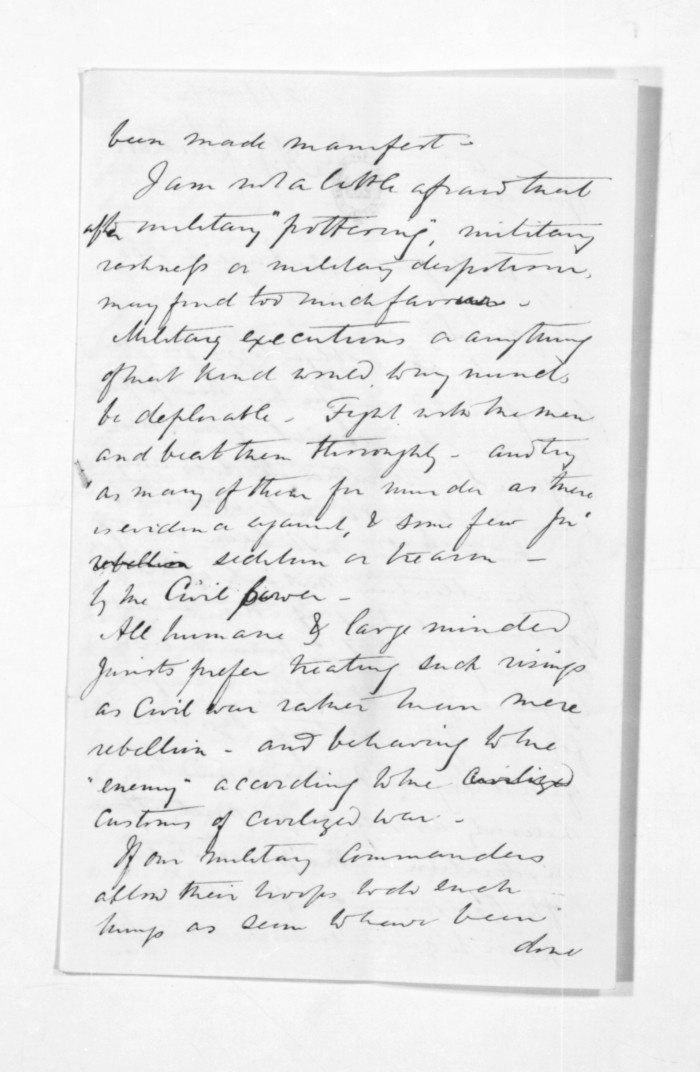 been made manifest -
I am not a little afraid that
after military "pottering", military
rashness or military despotism,
may find too much favour -
Military executions or anything
of that kind would, to my mind,
be deplorable - Fight with the men
and beat them thoroughly - and try
as many of them for murder as there
is evidence against, & some few for
rebellion sedition or treason -
by the Civil power -
All humane & large minded
jurists prefer treating such risings
as Civil war rather than mere
rebellion - and behaving to the
"enemy" according to the civilized
customs of civilized war -
If our military commanders
allow their troops to do such
things as seem to have been
done